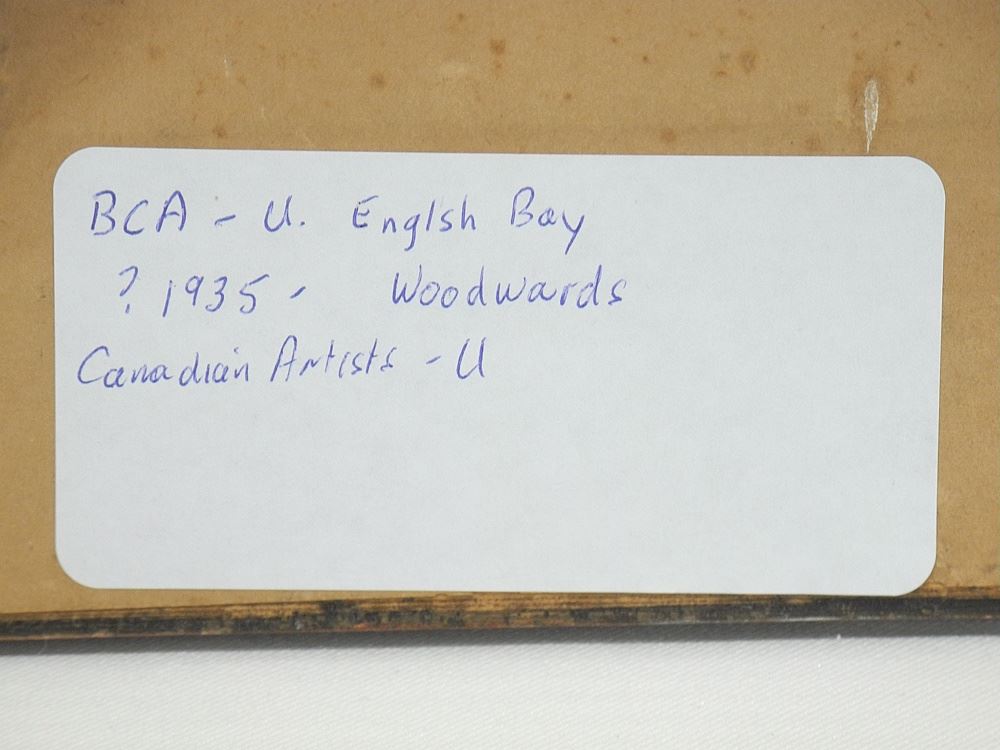 BCA - U. Englsh Bay
? 1935 - Woodwards
Canadian Artists - U